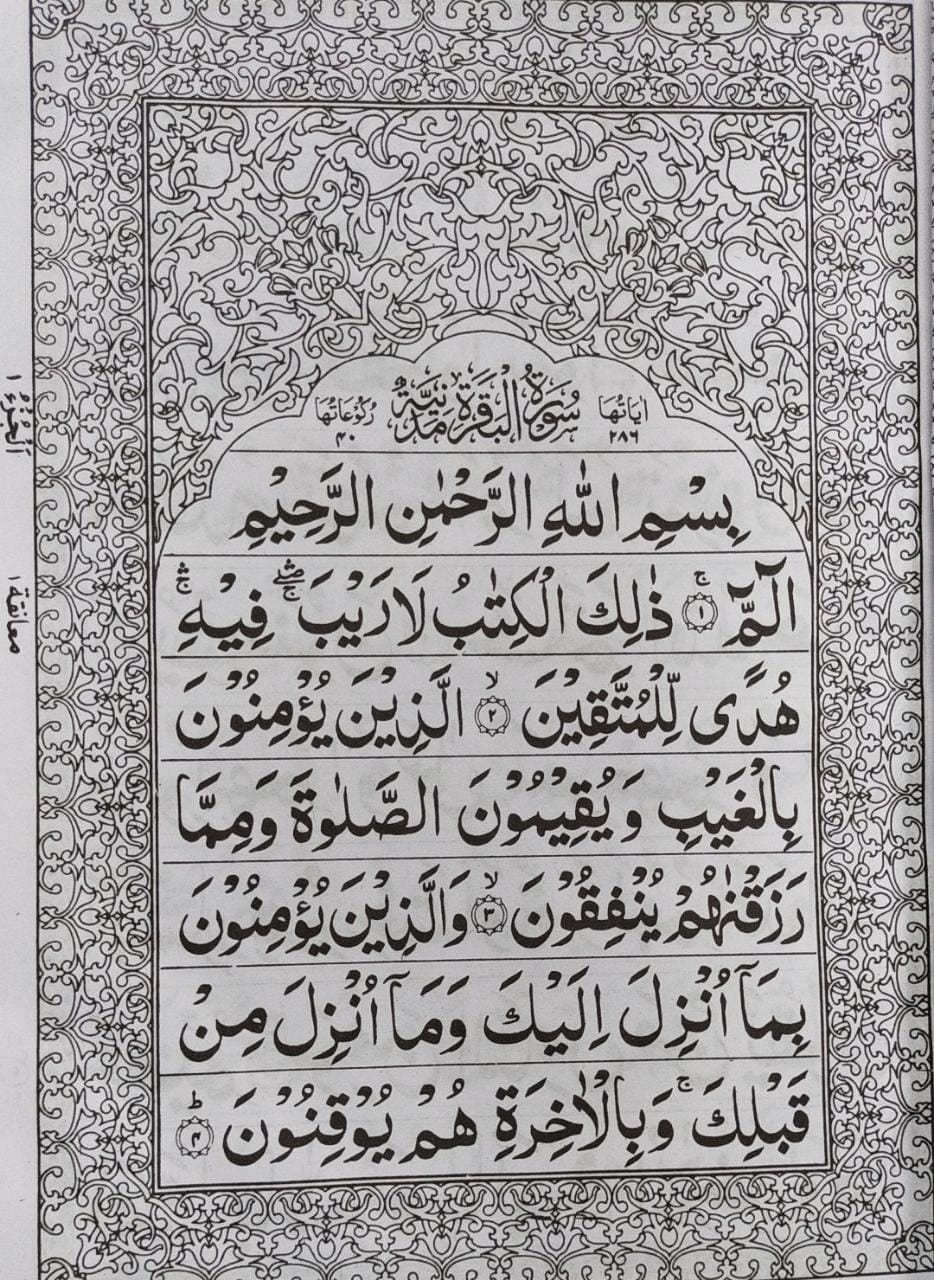 اٰيَاتُهَا ٢٨٦ سُوْرَةُ الْبَقَرَةِ مَدَنِيَّةٌ رُكُوْعَاتُهَا ٤٠
بِسْمِ اللّٰهِ الرَّحْمٰنِ الرَّحِيْمِ
الٓمّٓ ۚ ﴿١﴾ ذٰلِكَ الْكِتٰبُ لَا رَيْبَ ۛۖۚ فِيْهِ ۛۚ
هُدًى لِّلْمُتَّقِيْنَ ۙ ﴿٢﴾ الَّذِيْنَ يُؤْمِنُوْنَ
بِالْغَيْبِ وَيُقِيْمُوْنَ الصَّلٰوةَ وَمِمَّا
رَزَقْنٰهُمْ يُنْفِقُوْنَ ۙ ﴿٣﴾ وَالَّذِيْنَ يُؤْمِنُوْنَ
بِمَآ اُنْزِلَ اِلَيْكَ وَمَآ اُنْزِلَ مِنْ
قَبْلِكَ ۚ وَبِالْاٰخِرَةِ هُمْ يُوْقِنُوْنَ ؕ ﴿٤﴾
اَلْجُزْءُ ١
معانقة ١